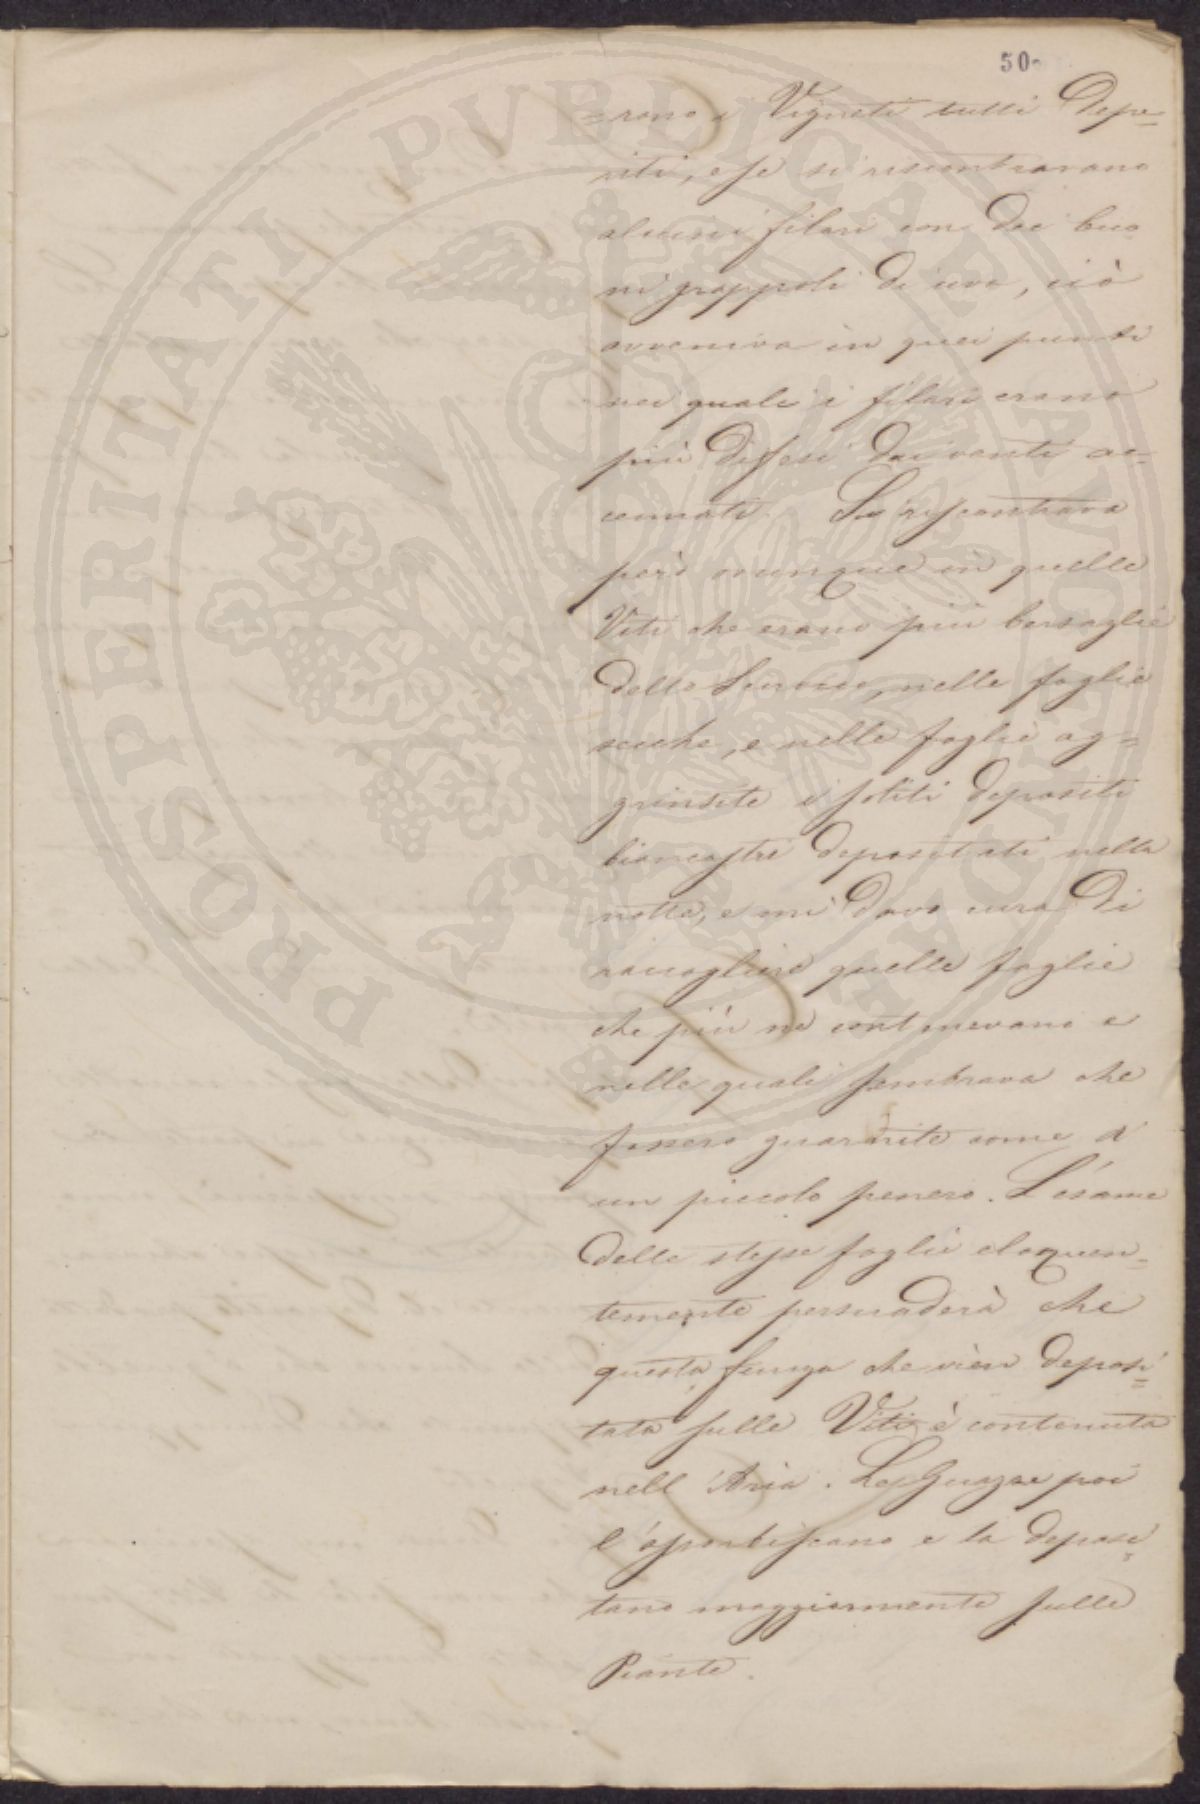 50
=rano i Vigneti tutti depe=
riti, e se si riscontravano
alcuni filari con due buo-
ni grappoli di uva, ciò
avveniva in quei punti
nei quali i filari erano
più difesi dai venti ac=
cennati. Si riscontrava
però ovunque in quelle
Viti che erano più bersaglie
dello Scirocco, nelle foglie
secche, e nelle foglie ag=
grinsite i soliti depositi
biancastri depositati nella
notte, e mi davo cura di
raccogliere quelle foglie
che più ne contenevano e
nelle quali sembrava che
fossero guarnite come d'
un piccolo penero. L'esame
delle stesse foglie eloquen=
temente persuaderà che
questa funga che vien deposi=
tata sulle Viti è contenuta
nell'Aria. Le Guazze poi
l'aportiscano e la deposi=
tano maggiormente sulle
Piante.
PROSPERITATI PVBLICAE AVGENDAE